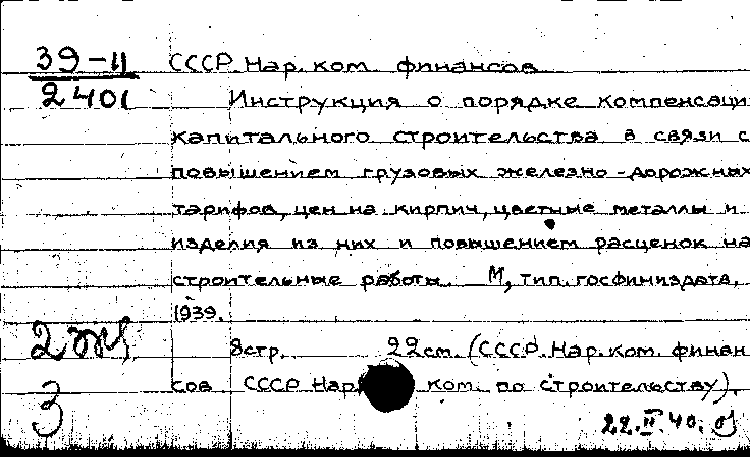 39-11
2401
СССР. Нар. ком. финансов
Инструкция о порядке компенсаци
капитального строительства в связи с
повышением грузовых железно-дорожных
тарифов, цен на кирпич, цветные металлы и
изделия из них и повышением расценок на
строительные работы. М, тип. госфиниздата,
1939.
8стр. 22см. (СССР. Нар. ком. финан
сов СССР Нар. ком. по строительству).
3
22.II.40.